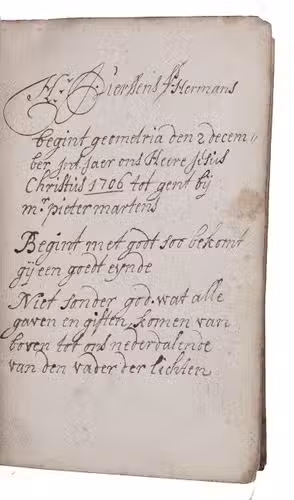 Hr Dierkens fs Hermans
begint geometria den 2 decem=
ber int jaer ons Heere jesus
Christus 1706 tot gent bij
mr pieter martens
Begint met godt soo bekomt
gij een goedt eynde
Niet sonder god wat alle
gaven en giften, komen van
boven tot ons nederdalende
van den vader der lichten